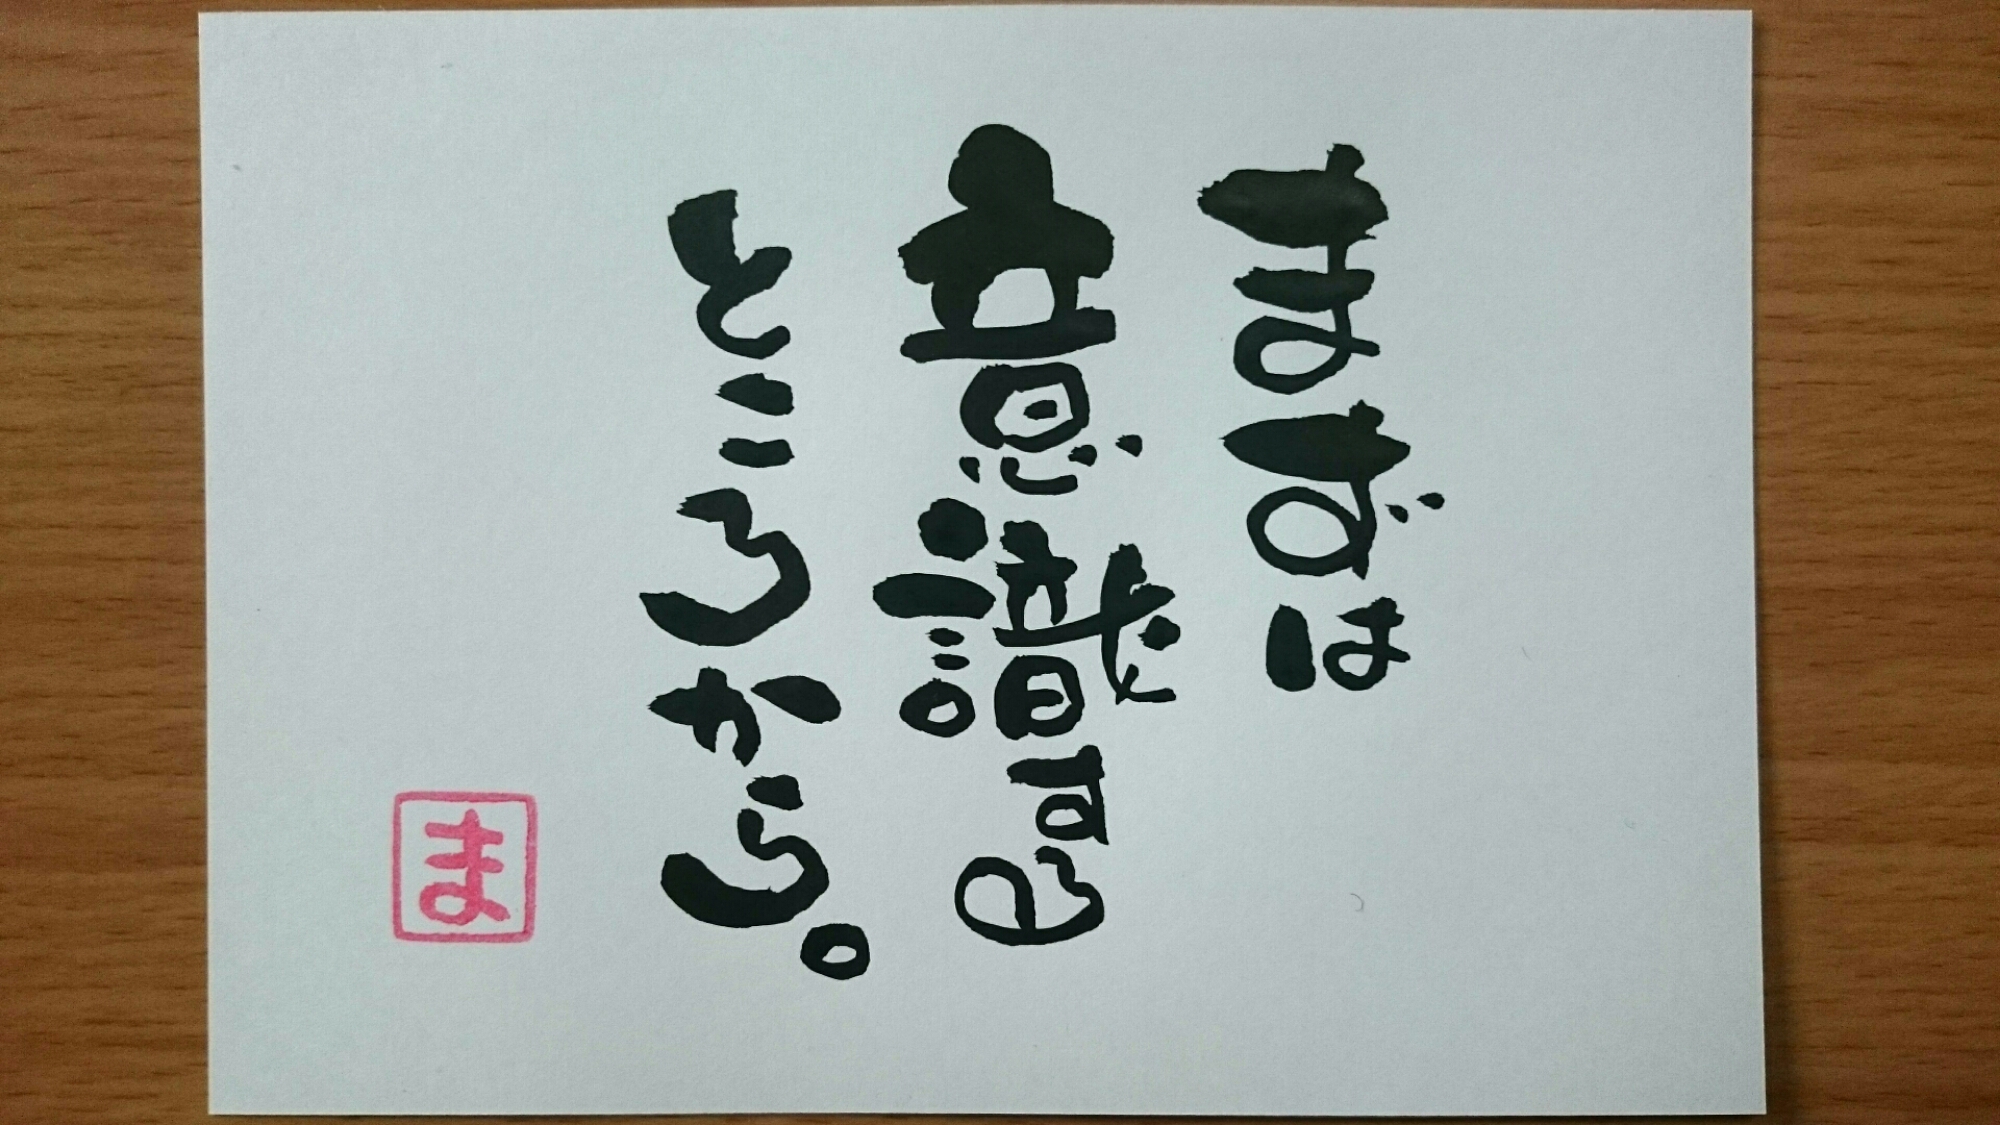 まずは
意識する
ところから。
ま